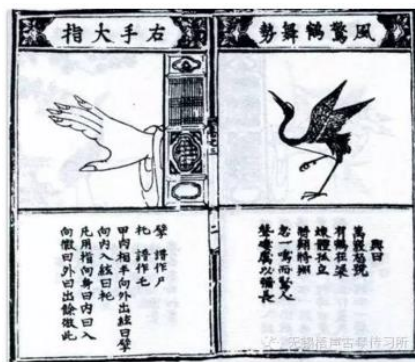 風驚鶴舞勢
興曰
萬竅怒號
有鶴在梁
竦體孤立
將翱將翔
忽一鳴而驚人
聲凄厲以彌長
右手大指
擘 譜作尸
托 譜作乇
甲肉相半向外出絃曰擘
向內入絃曰托
凡用指向身曰內曰入
向徽曰外曰出餘倣此
古琴传习所